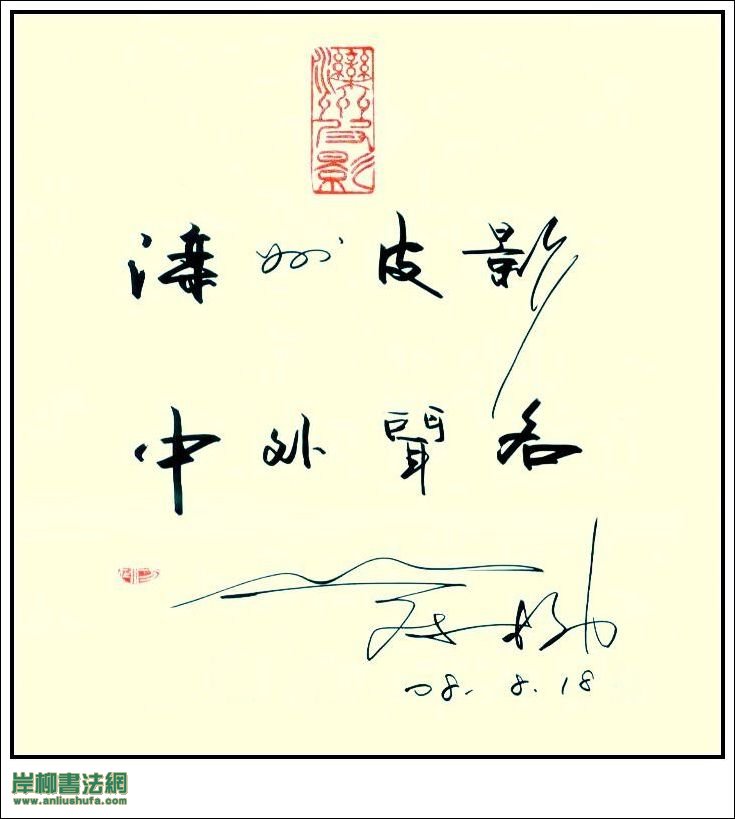 灤州皮影
灤州皮影
中外聞名
08.8.18
岸柳書法網
www.anliushufa.com